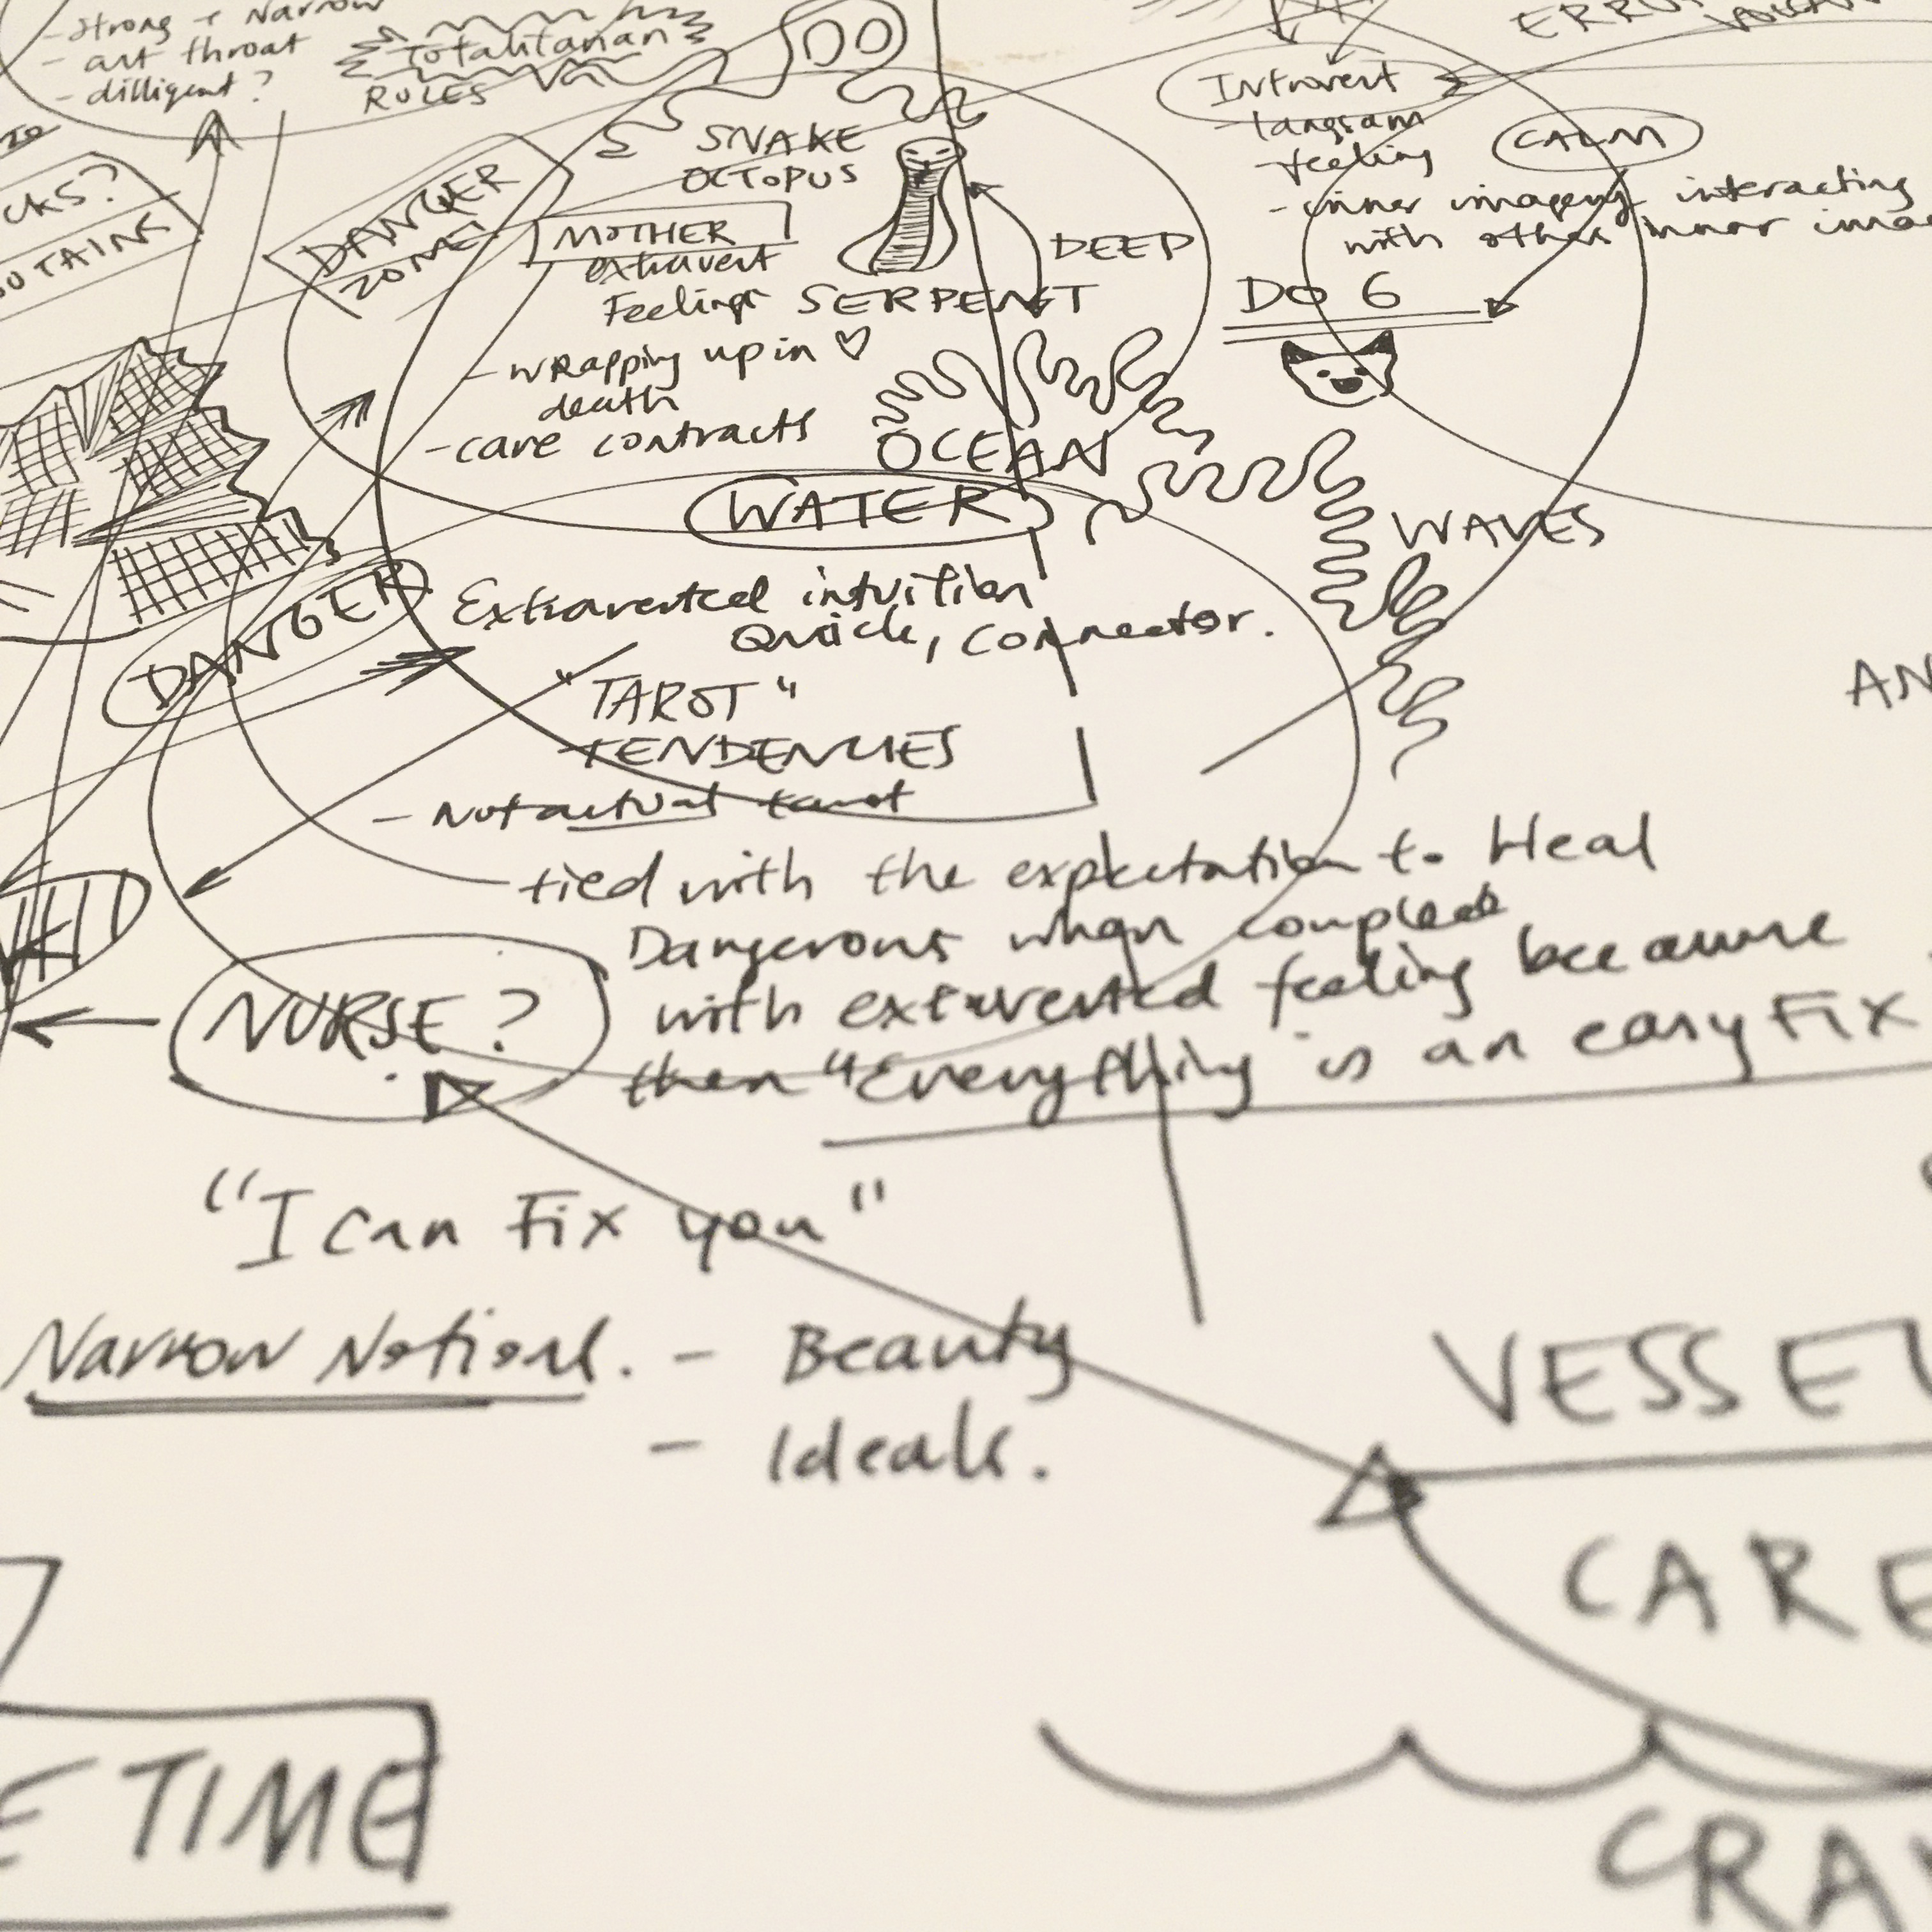 - Strong + Narrow
- art throat
- dilligent?
Totalitarian
RULES
SNAKE
OCTOPUS
DANGER
ZONE!
MOTHER
extravert
Feelings
SERPENT
DEEP
- wrapping up in ♡
death
- care contracts
OCEAN
WATER
WAVES
Introvert
- langsam
- feeling
CALM
- inner imagery interacting
with other inner
DO 6
DANGER
Extraverted intuition
Quick, connector.
"TAROT"
TENDENCIES
- Not actual tarot
tied with the expectation to Heal
Dangerous when coupled
with extraverted feeling because
then "Everything is an easy Fix
NURSE?
"I Can Fix you"
Narrow Notions. - Beauty
- Ideals.
VESSEL
CARE
TIME